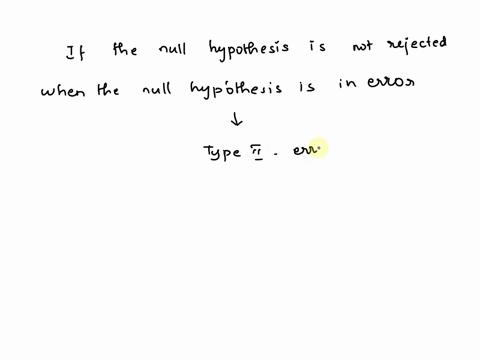 If the null hypothesis is not rejected
when the null hypothesis is in error
↓
Type II - err